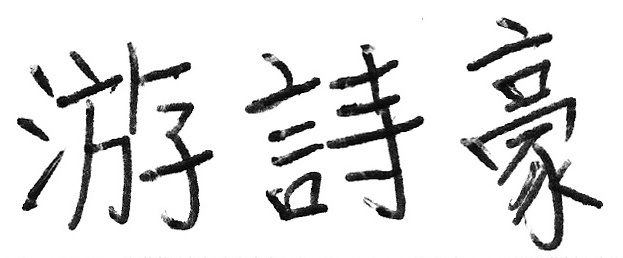 游詩豪